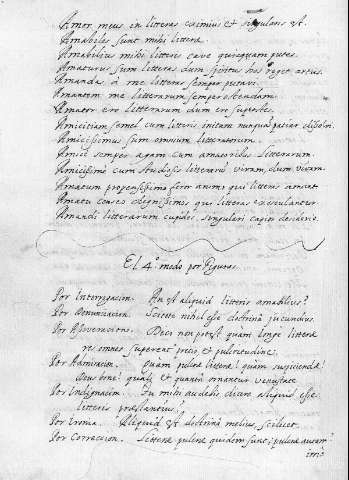 Amor meus in litteras eximius et singularis est.
Amabiles sunt mihi litteræ.
Amabilius mihi litteris cave quicquam putes.
Amaturus sum litteras dum spiritus hos reget artus.
Amandas à me litteras semper putavi.
Amantem me litterarum semper ostendam.
Amator ero litterarum dum ero superstes.
Amicitiam semel cum litteris initam nunquã patiar dissolvi.
Amicissimus sum omnium litteratorum.
Amicè semper agam cum amatoribus litterarum.
Amicissimè cum studiosis litterarũ vivam, dum vivam.
Amatum propensissimo feror animo qui litteris
Amatu censeo dignissimos qui litteras
Amandi litterarum cupidos, singulari capior desiderio.
El 4.º modo por Figuras.
Por Interrogacion. An est aliquid litteris amabilius?
Por Denunciacion. Scitote nihil esse doctrina jucundius.
Por Aseveracion. Dici non potest quam longè litteræ
res omnes superent precio et pulcritudine.
Por Admiracion. Quam pulcræ litteræ! quam suspiciendæ!
Deus bone! quali et quanta ornantur venustate
Por Indignacion. Tu mihi audebis dicere aliquid esse
litteris præstantius?
Por Ironia. Aliquid est doctrina melius, scilicet.
Por Correccion. Litteræ pulcræ quidem sunt; pulcræ autem?
imò